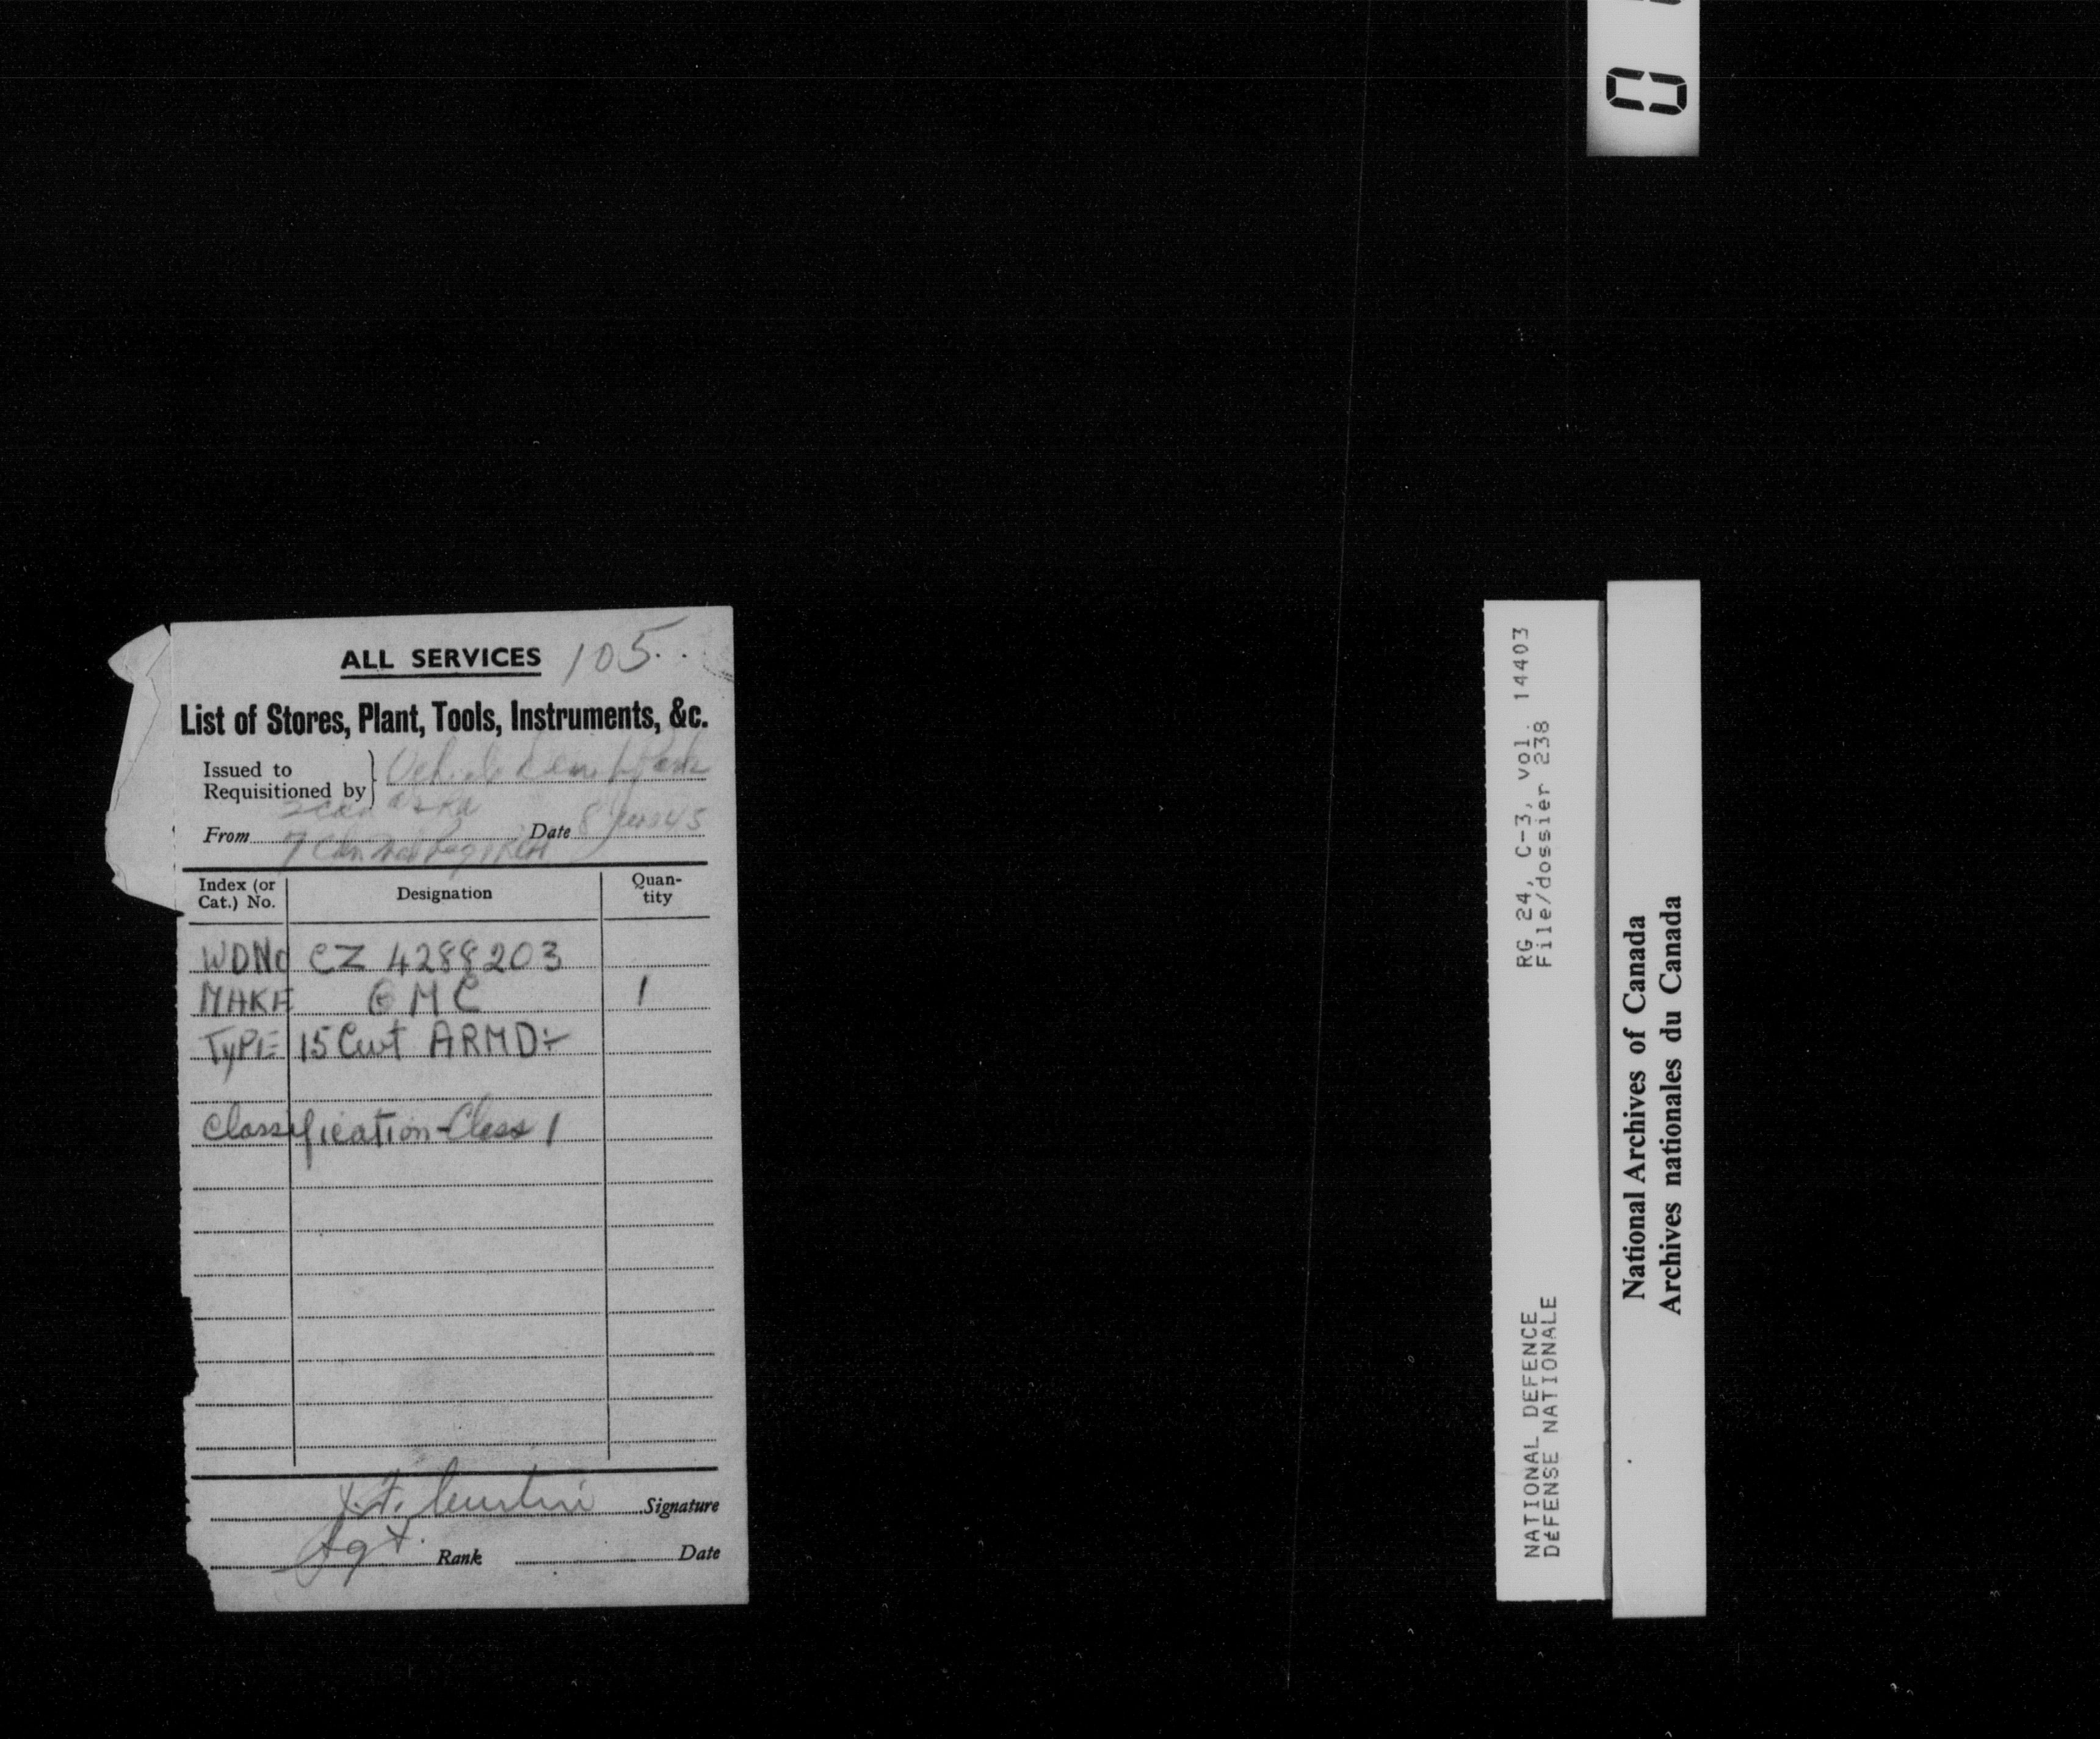 0
ALL SERVICES 105.
List of Stores, Plant, Tools, Instruments, &c.
Issued to
Requisitioned by
Vehicle Park
From Date 8 June 45
7 Cdn Med Regt RCA
Index (or Cat.) No. Designation Quan-tity
WDNo CZ 4288203
MAKE GMC 1
TYPE 15 Cwt ARMD:-
Classification - Class 1
Signature
Sgt. Rank Date
RG 24, C-3, vol. 14403
File/dossier 238
NATIONAL DEFENCE
DéFENSE NATIONALE
National Archives of Canada
Archives nationales du Canada